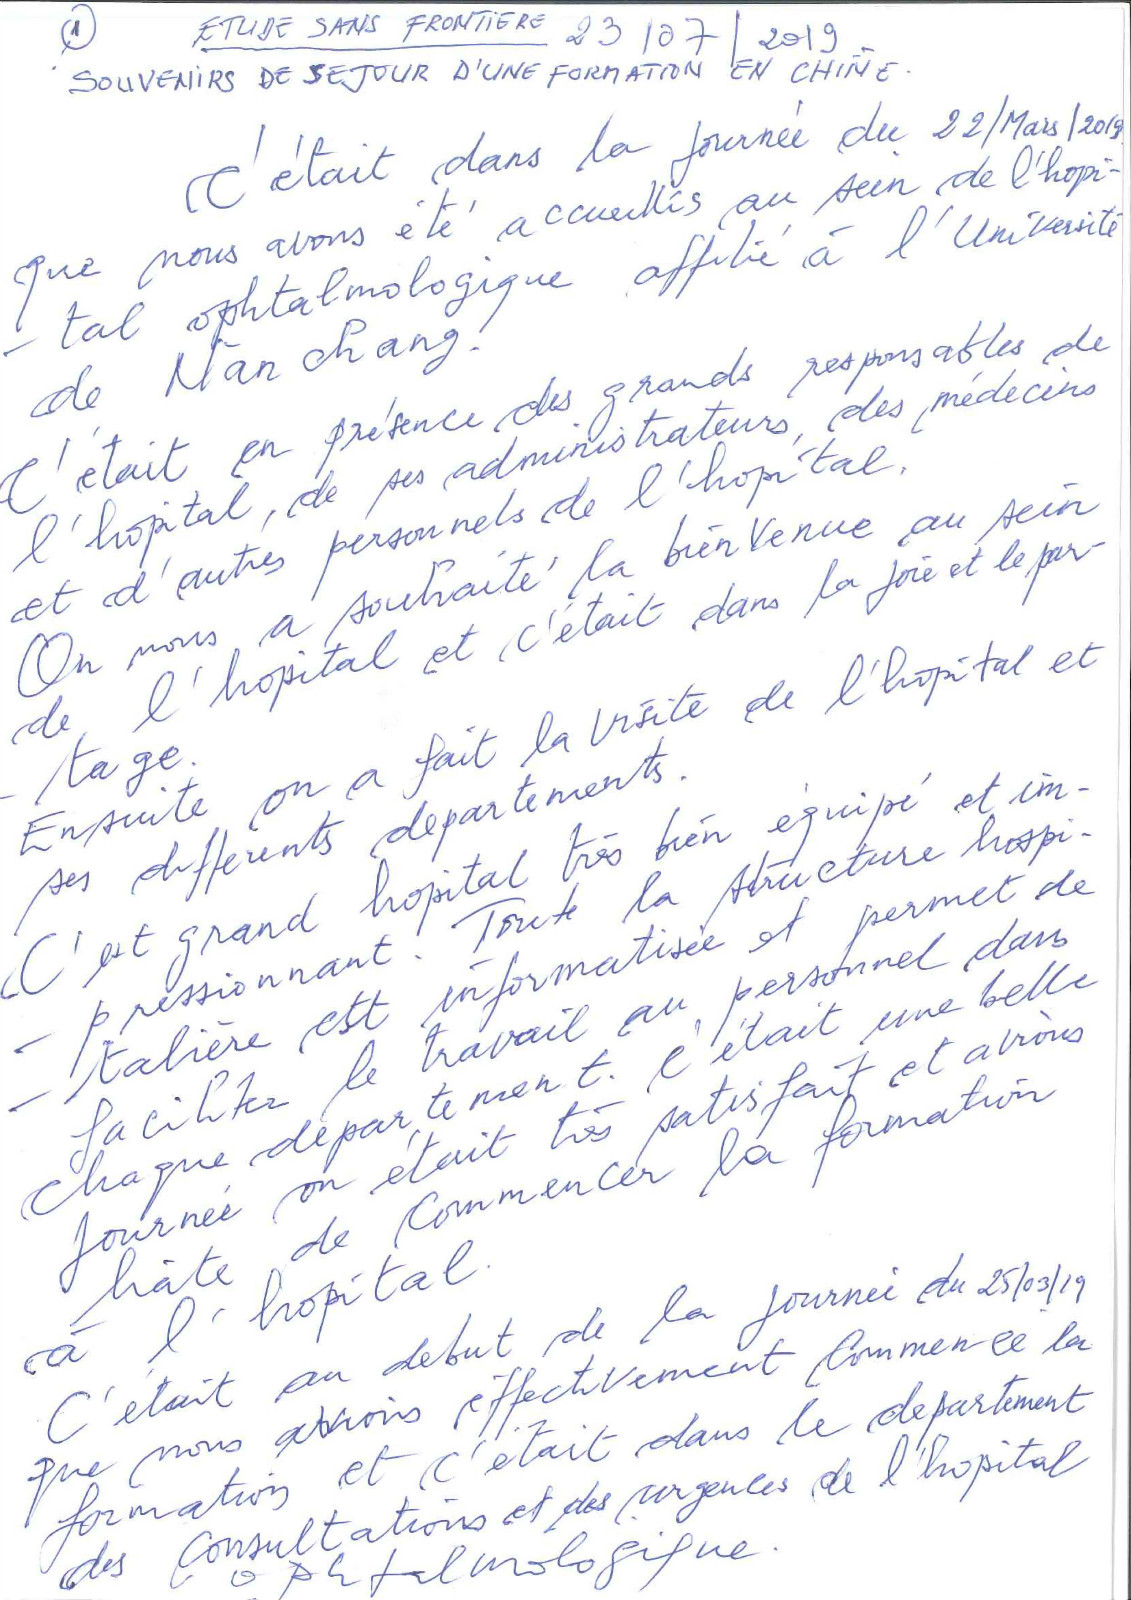 1 ETUDE SANS FRONTIERE 23/07/2019
SOUVENIRS DE SEJOUR D'UNE FORMATION EN CHINE.
C'était dans la journée du 22/Mars/2019
que nous avons été accueillis au sein de l'hopi-
- tal ophtalmologique affilié à l'Université
de Nan chang.
C'était en présence des grands responsables de
l'hopital, de ses administrateurs, des médecins
et d'autres personnels de l'hopital.
On nous a souhaité la bienvenue au sein
de l'hopital et c'était dans la joie et le par-
- tage.
Ensuite on a fait la visite de l'hopital et
ses differents departements.
C'est grand hopital très bien équipé et im-
- pressionnant. Toute la structure hospi-
- talière est informatisée et permet de
faciliter le travail au personnel dans
chaque departement. C'était une belle
journée on était très satisfait et avions
hâte de commencer la formation
à l'hopital.
C'était au debut de la journée du 25/03/19
que nous avions effectivement commencé la
formation et c'était dans le departement
des consultations et des urgences de l'hopital
ophtalmologique.